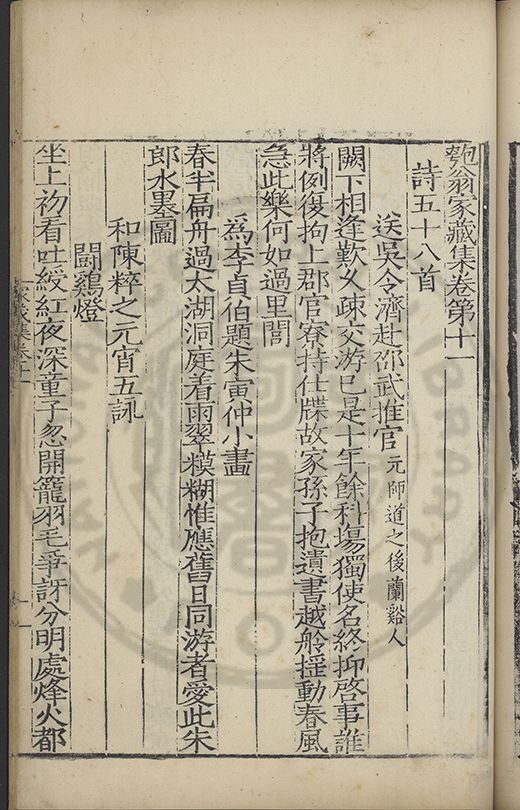 匏翁家藏集卷第十一
詩五十八首
送吳令濟赴邵武推官 元師道之後蘭谿人
闕下相逢歎乆疎交游已是十年餘科塲獨使名終抑啓事誰
將例復拘上郡官寮持仕牒故家孫子抱遺書越舲揺動春風
急此樂何如過里閭
爲李貞伯題朱寅仲小畫
春半扁舟過太湖洞庭着雨翠糢糊惟應舊日同游者愛此朱
郎水墨圖
和陳粹之元宵五詠
鬪鷄燈
坐上初看吐綬紅夜深童子忽開籠羽毛爭訝分明處烽火都